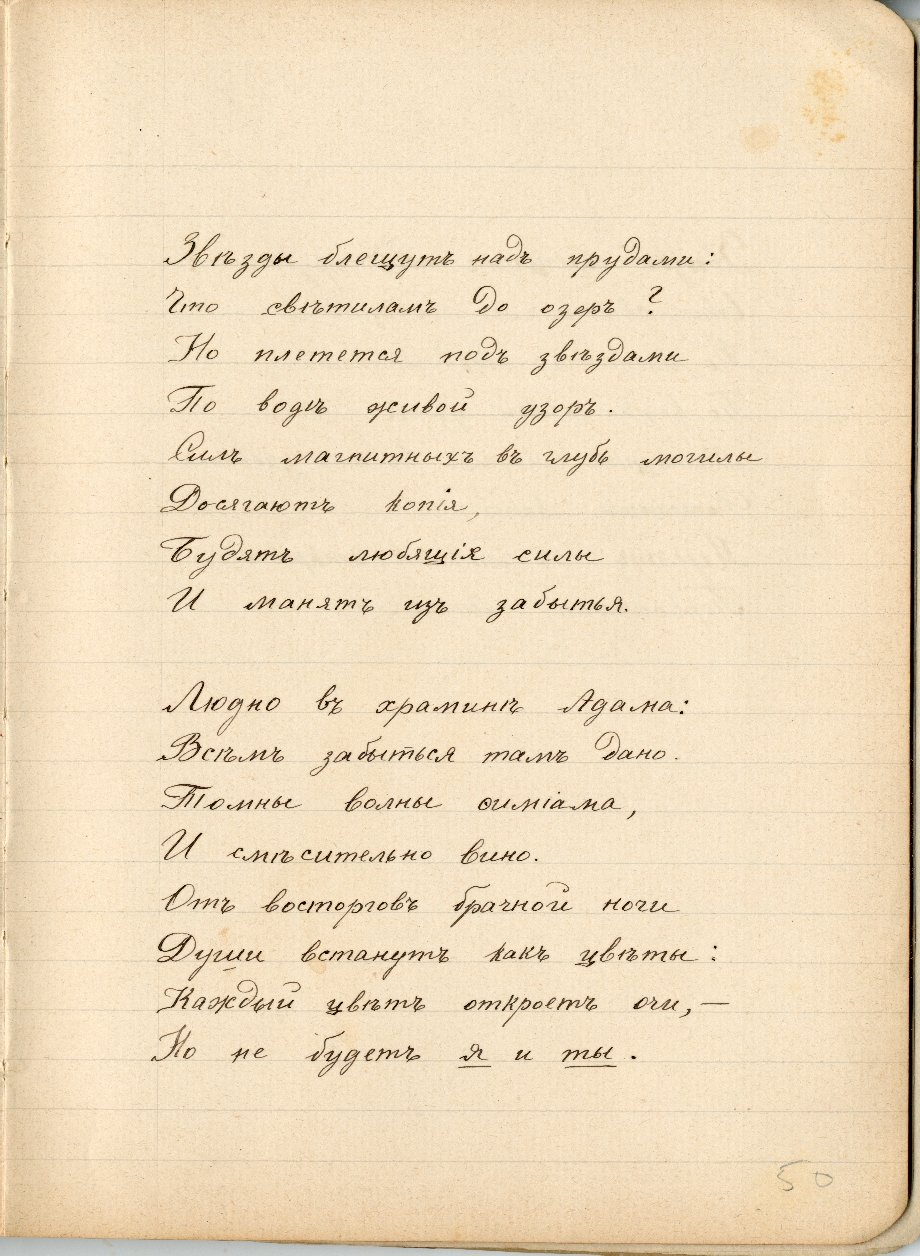 Звѣзды блещутъ надъ прудами:
Что свѣтиламъ до озеръ?
Но плетется подъ звѣздами
По водѣ живой узоръ.
Силъ магнитныхъ въ глубь могилы
Досягаютъ копія,
Будятъ любящія силы
И манятъ изъ забытья.
Людно въ храминѣ Адама:
Всѣмъ забыться тамъ дано.
Томны волны ѳиміама,
И смѣсительно вино.
Отъ восторговъ брачной ночи
Души встанутъ какъ цвѣты:
Каждый цвѣтъ откроетъ очи,—
Но не будетъ я и ты.
50